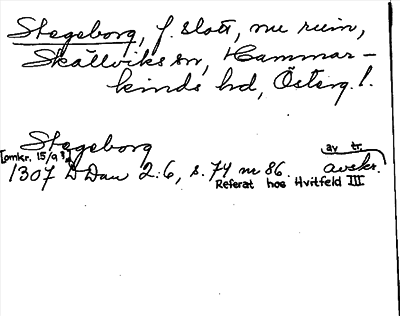 Stegeborg, f. slott, nu ruin,
Skällviks sn, Hammar-
kinds hd, Österg. l.
Stegeborg
[omkr. 15/9 ?] av tr.
1307 D Dan 2:6, s. 74 nr 86. avskr.
Referat hos Hvitfeld III